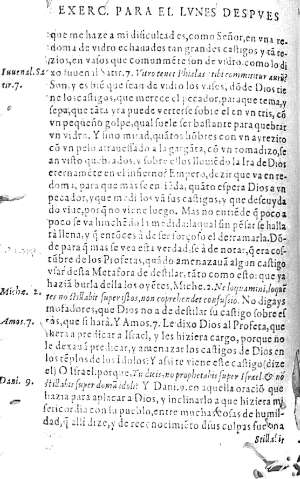 EXERC. PARA EL LVNES DESPVES
que me haze a mi dificultad es, como Señor, en vna re
doma de vidro echauades tan grandes castigos y tā re
zios, en vasos que comunmēte son de vidro. como lo di
Iuuenal. Sa
tir. 7.
xo Iuuenal Satir. 7. Vitro tenet Phialas tibi committitur aurū?
Son, y es biē que sean de vidro los vasos, dōde Dios tie
ne los castigos, que merece el pecador, para que tema, y
sepa, que tāta yra puede verterse sobre el en vn tris, cō
vn pequeño golpe, qual suele ser bastante para quebrar
vn vidro. Y sino mirad, quātos hōbres con vn ayrezito
cō vn pelo atrauessado a la gargāta, cō vn romadizo, se
an visto quebrados, y sobre ellos llouido la Ira de Dios
eternamēte en el infierno? Empero, dezir que va en re
doma, para que mas se entiēda, quāto espera Dios a vn
pecador, y que midi los vā sus castigos, y que descuyda
do viue, porq̄ no viene luego. Mas no entiēde q̄ poco a
poco se va hinchādo la medida, la qual sin pēsar se halla
rá llena, y q̄ entōces à de ser forçoso el derramarla. Dō
de para q̄ mas se vea esta verdad, se à de notar, q̄ era cos
tūbre de los Prophetas, quādo amenazauā algun castigo
vsar desta Metafora de destilar, tāto como esto: que ya
Mich{æ. 2.
hazīā burla della los oyētes, Mich. 2. Ne loquamini, loquē
tes non stillabit super istos, non coprehendet confusio. No digays
mofadores, que Dios no a de destilar su castigo sobre es
Amos. 7.
tos, que si harà. Y Amos. 7. Le dixo Dios al Profeta, que
fuera a predicar a Israel, y les hiziera cargo, porque no
le dexauā predicar, y amenazar los castigos de Dios en
los tēplos de los idolos: y assi te viene este castigo (dize
el) O Israel: porque, Tu dicis, no prophetabis super Israel, & nō
Dani. 9.
stillabis super domū idoli? Y Dani. 9. en aquella oraciō que
hazia para aplacar a Dios, y inclinarlo a que hiziera mi
sericordia con su pueblo, entre muchas cosas de humil-
dad, q̄ alli dize, y de reconocimiēto d sus culpas fue vna
Stillabit